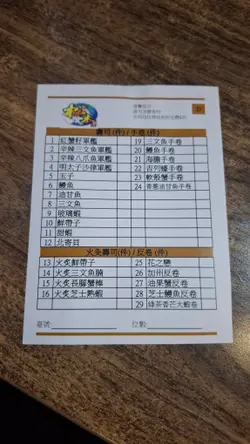 壽司(件) / 手卷(件)
1 紅蟹籽軍艦 19 三文魚手卷
2 辛辣三文魚軍艦 20 鰻魚手卷
3 辛辣八爪魚軍艦 21 海膽手卷
4 明太子沙律軍艦 22 吉列蠔手卷
5 玉子 23 軟殼蟹手卷
6 鰻魚 24 香蔥油甘魚手卷
7 油甘魚
8 三文魚
9 玻璃蝦
10 鮮帶子
11 甜蝦
12 北寄貝
火炙壽司(件) / 反卷 (件)
13 火炙鮮帶子 25 花之戀
14 火炙三文魚腩 26 加州反卷
15 火炙長腳蟹棒 27 油果蟹反卷
16 火炙芝士熟蝦 28 芝士鰻魚反卷
29 綠茶香芒大蝦卷
臺號 位數